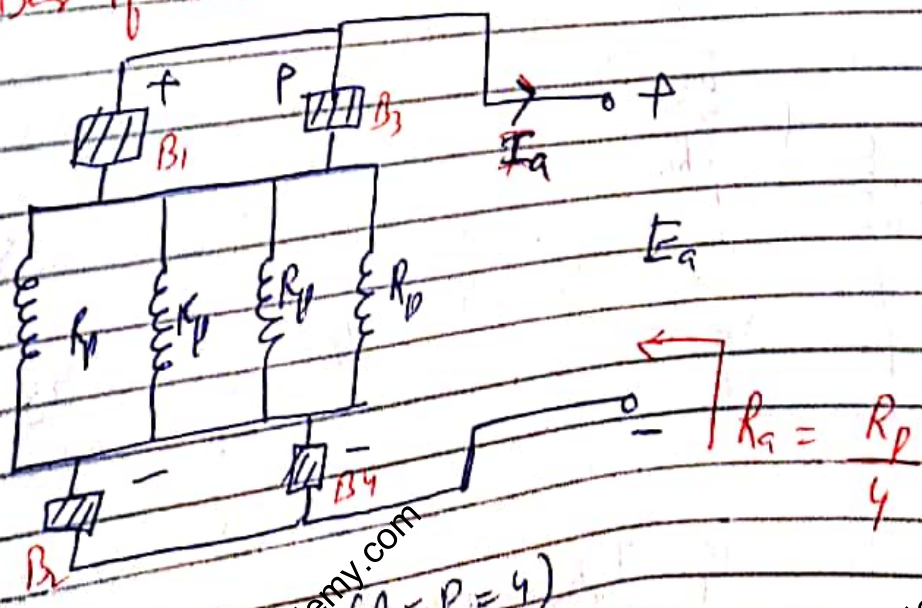 + P + 
B1 B3
Ia
Ea
Rp Rp Rp Rp
Ra = Rp / 4
- - -
B4
B2
emy.com
P = 4)